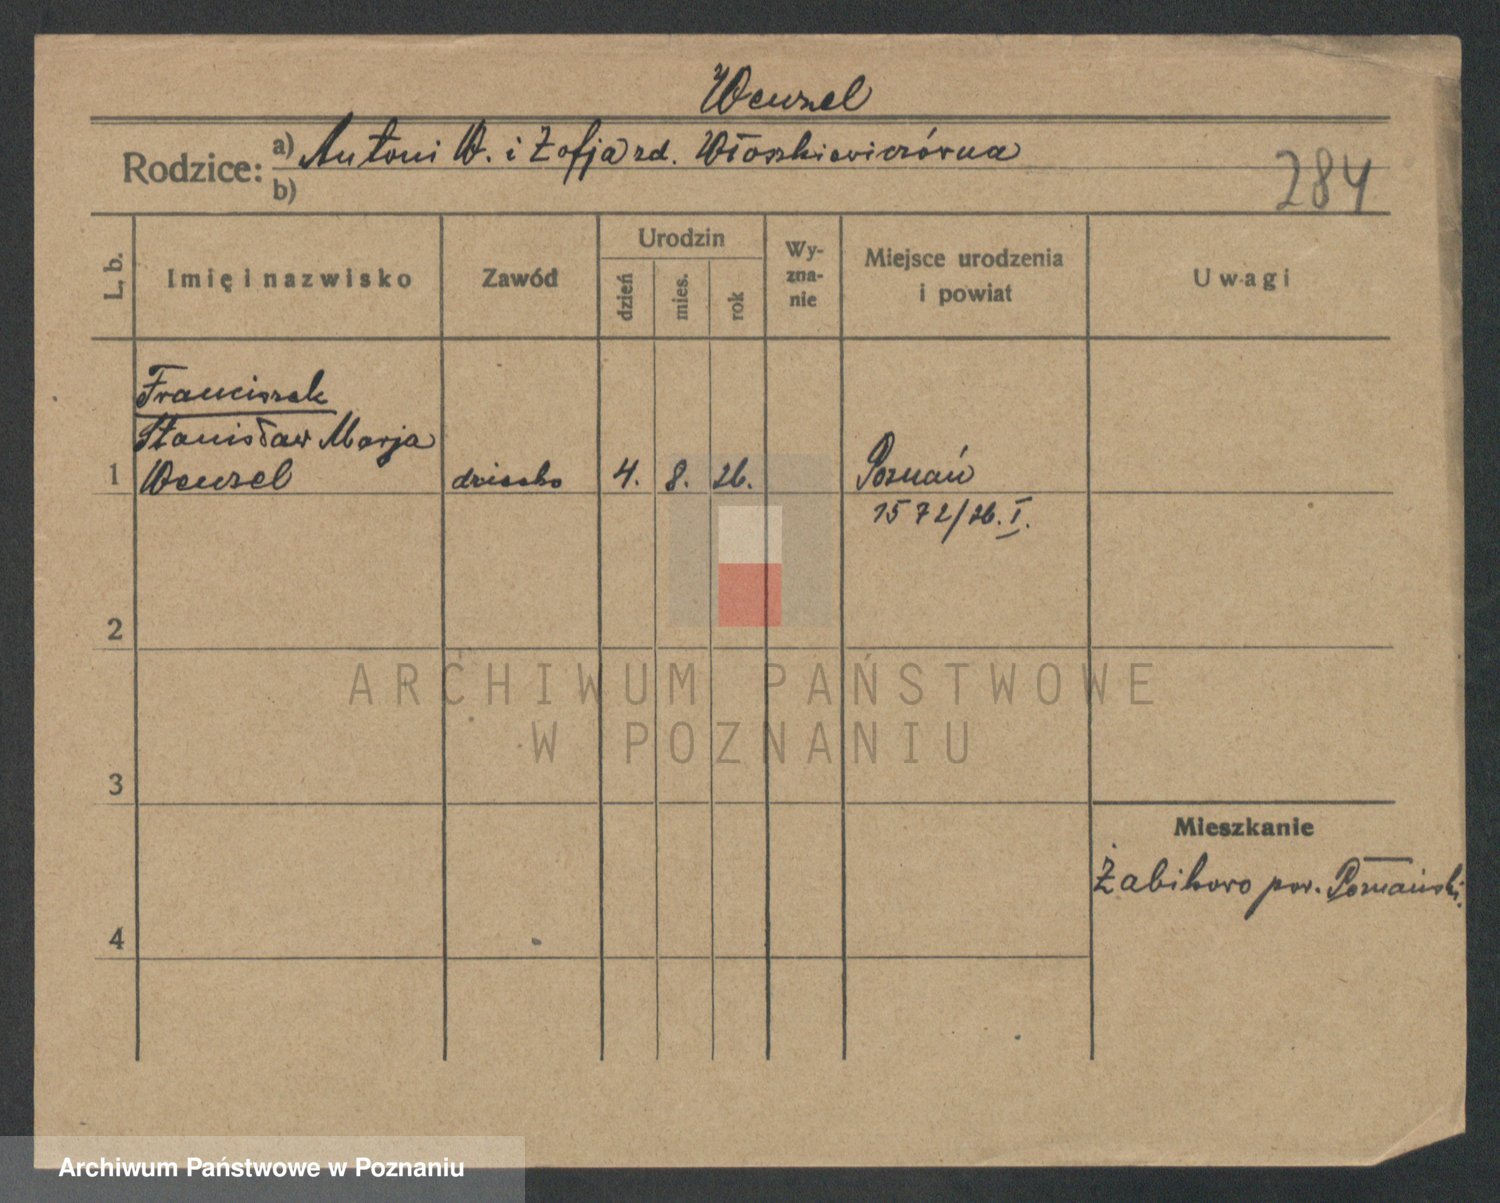 Wenzel
Rodzice: a) Antoni W. i Zofja zd. Włoszkiewiczówna
b)
284
L. b.
Imię i nazwisko
Zawód
Urodzin
dzień
mies.
rok
Wy-
zna-
nie
Miejsce urodzenia
i powiat
Uwagi
Franciszek
Stanisław Marja
1 Wenzel dziecko 4. 8. 26. Poznań
1572/26. I.
2
ARCHIWUM PAŃSTWOWE
W POZNANIU
3
Mieszkanie
Żabikowo pow. Poznański.
4
Archiwum Państwowe w Poznaniu